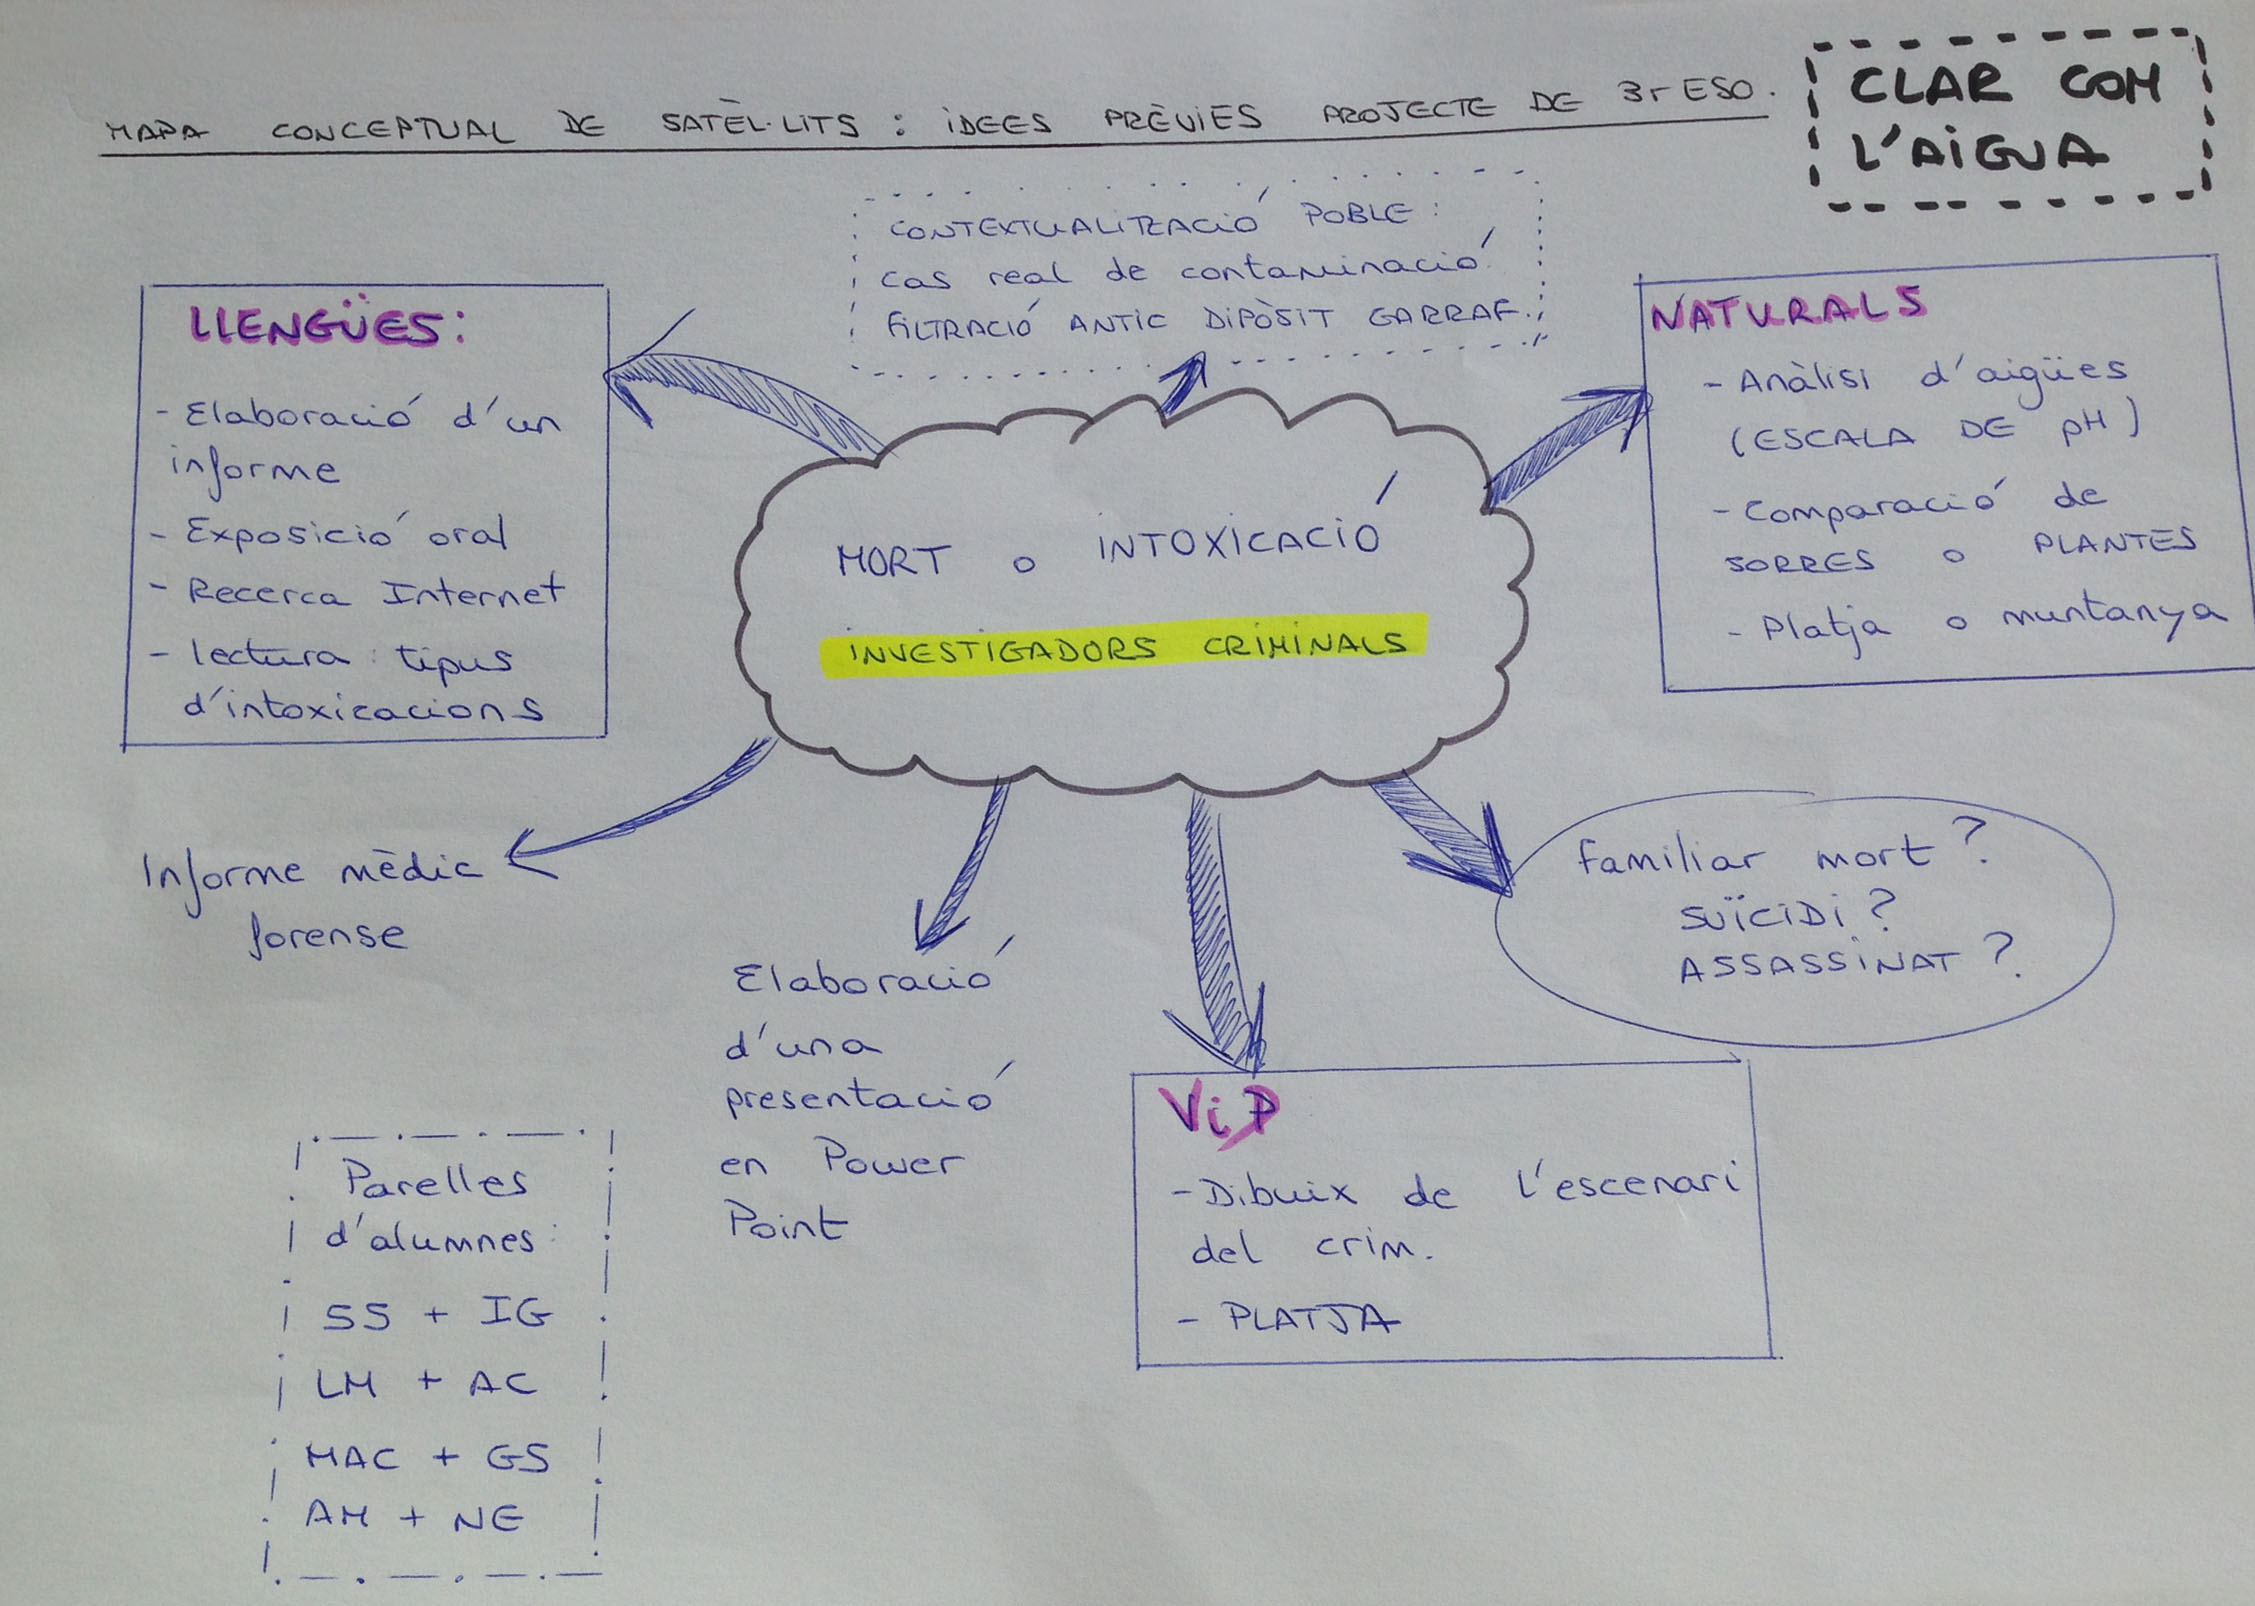 MAPA CONCEPTUAL DE SATÈL·LITS : IDEES PRÈVIES PROJECTE DE 3r ESO.
CLAR COM
L'AIGUA
CONTEXTUALITZACIÓ POBLE :
cas real de contaminació
FILTRACIÓ ANTIC DIPÒSIT GARRAF.
LLENGÜES:
- Elaboració d'un
informe
- Exposició oral
- Recerca Internet
- lectura tipus
d'intoxicacions
NATURALS
- Anàlisi d'aigües
(ESCALA DE pH)
- Comparació de
SORRES o PLANTES
- Platja o muntanya
MORT o INTOXICACIÓ
INVESTIGADORS CRIMINALS
Informe mèdic
forense
Elaboració
d'una
presentació
en Power
Point
familiar mort?
SUÏCIDI?
ASSASSINAT?
ViP
- Dibuix de l'escenari
del crim.
- PLATJA
Parelles
d'alumnes:
SS + IG
LM + AC
MAC + GS
AM + NE